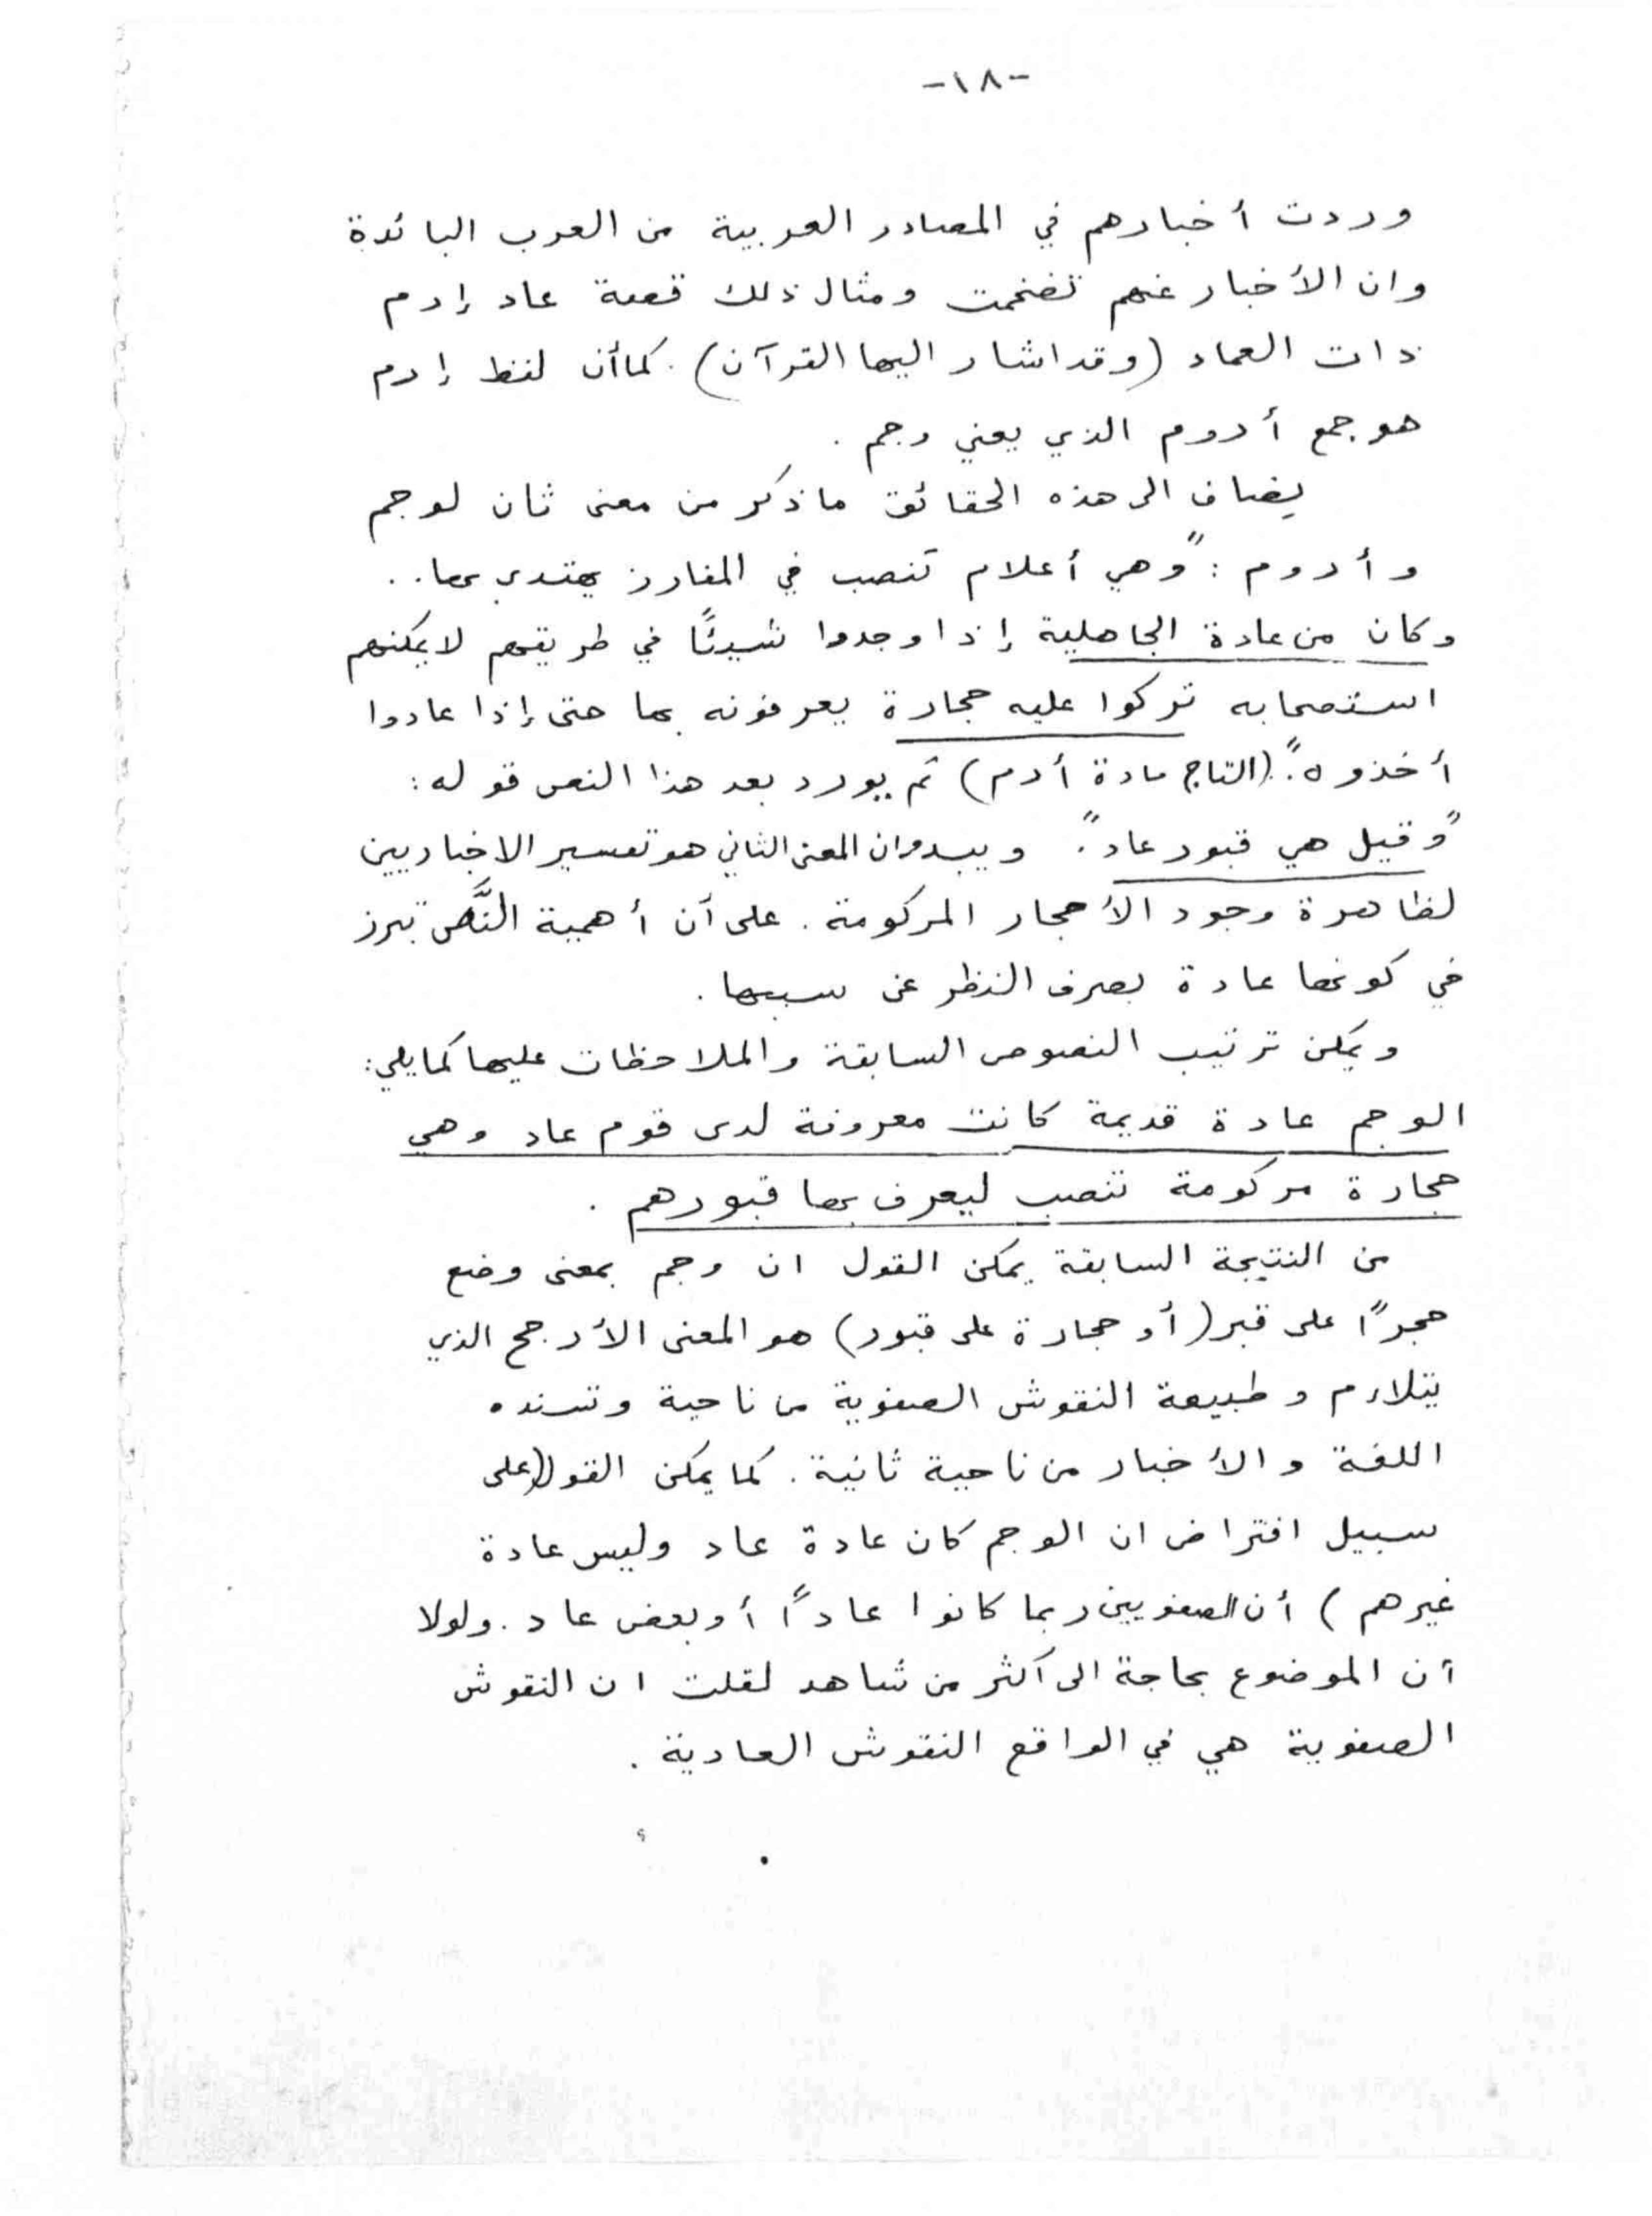 -١٨-
وردت أخبارهم في المصادر العربية من العرب البائدة
وان الأخبار عنهم تضخمت ومثال ذلك قصة عاد إرم
ذات العماد (وقد اشار اليها القرآن). كما أن لفظ إرم
هو جمع أروم الذي يعني رجم .
يضاف الى هذه الحقائق ما ذكر من معنى ثان لوجم
وأروم : "وهي أعلام تنصب في المفاوز يهتدى بها..
وكان من عادة الجاهلية إذا وجدوا شيئًا في طريقهم لا يمكنهم
استصحابه تركوا عليه حجارة يعرفونه بها حتى إذا عادوا
أخذوه". (التاج مادة أرم) ثم يورد بعد هذا النص قوله :
"وقيل هي قبور عاد". ويبدو ان المعنى الثاني هو تفسير الاخباريين
لظاهرة وجود الأحجار المركومة. على أن أهمية النَّص تبرز
في كونها عادة بصرف النظر عن سببها.
ويمكن ترتيب النصوص السابقة والملاحظات عليها كما يلي:
الوجم عادة قديمة كانت معروفة لدى قوم عاد وهي
حجارة مركومة تنصب ليعرف بها قبورهم .
من النتيجة السابقة يمكن القول ان وجم بمعنى وضع
حجرًا على قبر (أو حجارة على قبور) هو المعنى الأرجح الذي
يتلاءم وطبيعة النقوش الصفوية من ناحية وتسنده
اللغة والأخبار من ناحية ثانية. كما يمكن القول (على
سبيل افتراض ان الوجم كان عادة عاد وليس عادة
غيرهم) أن الصفويين ربما كانوا عادًا أو بعض عاد. ولولا
أن الموضوع بحاجة الى أكثر من شاهد لقلت ان النقوش
الصفوية هي في الواقع النقوش العادية .